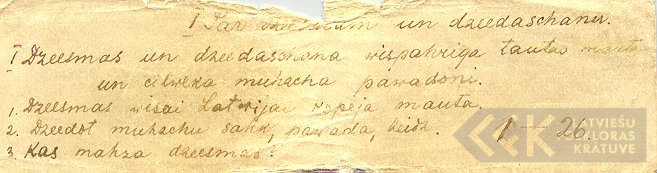 I Par dzeesmam un dzeedaschanu.
I Dzeesmas un dzeedaschana wispahriga tautas
un cilweka muhscha pawadoni.
1. Dzeesmas wisai Latwijai kopeja manta.
2. Dzeedot muhschu sahk, pawada, beidz. 1 - 26.
3. Kas mahza dzeesmas?
LATVIEŠU
FOLKLORAS
KRĀTUVE